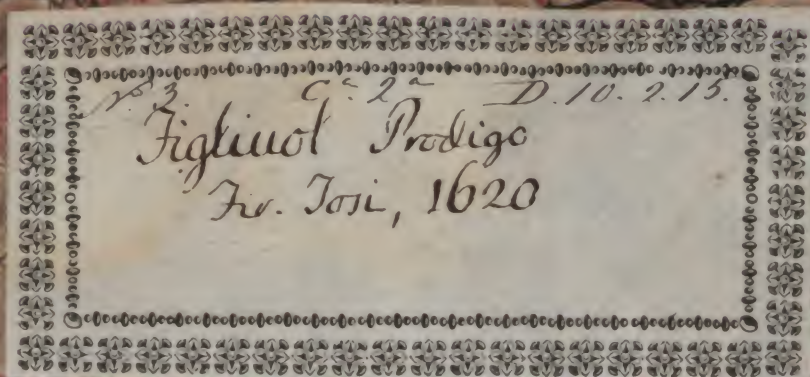 N.º 3. C.ª 2.ª D. 10. 2. 15.
Figliuol Prodigo
Fir. Tosi, 1620